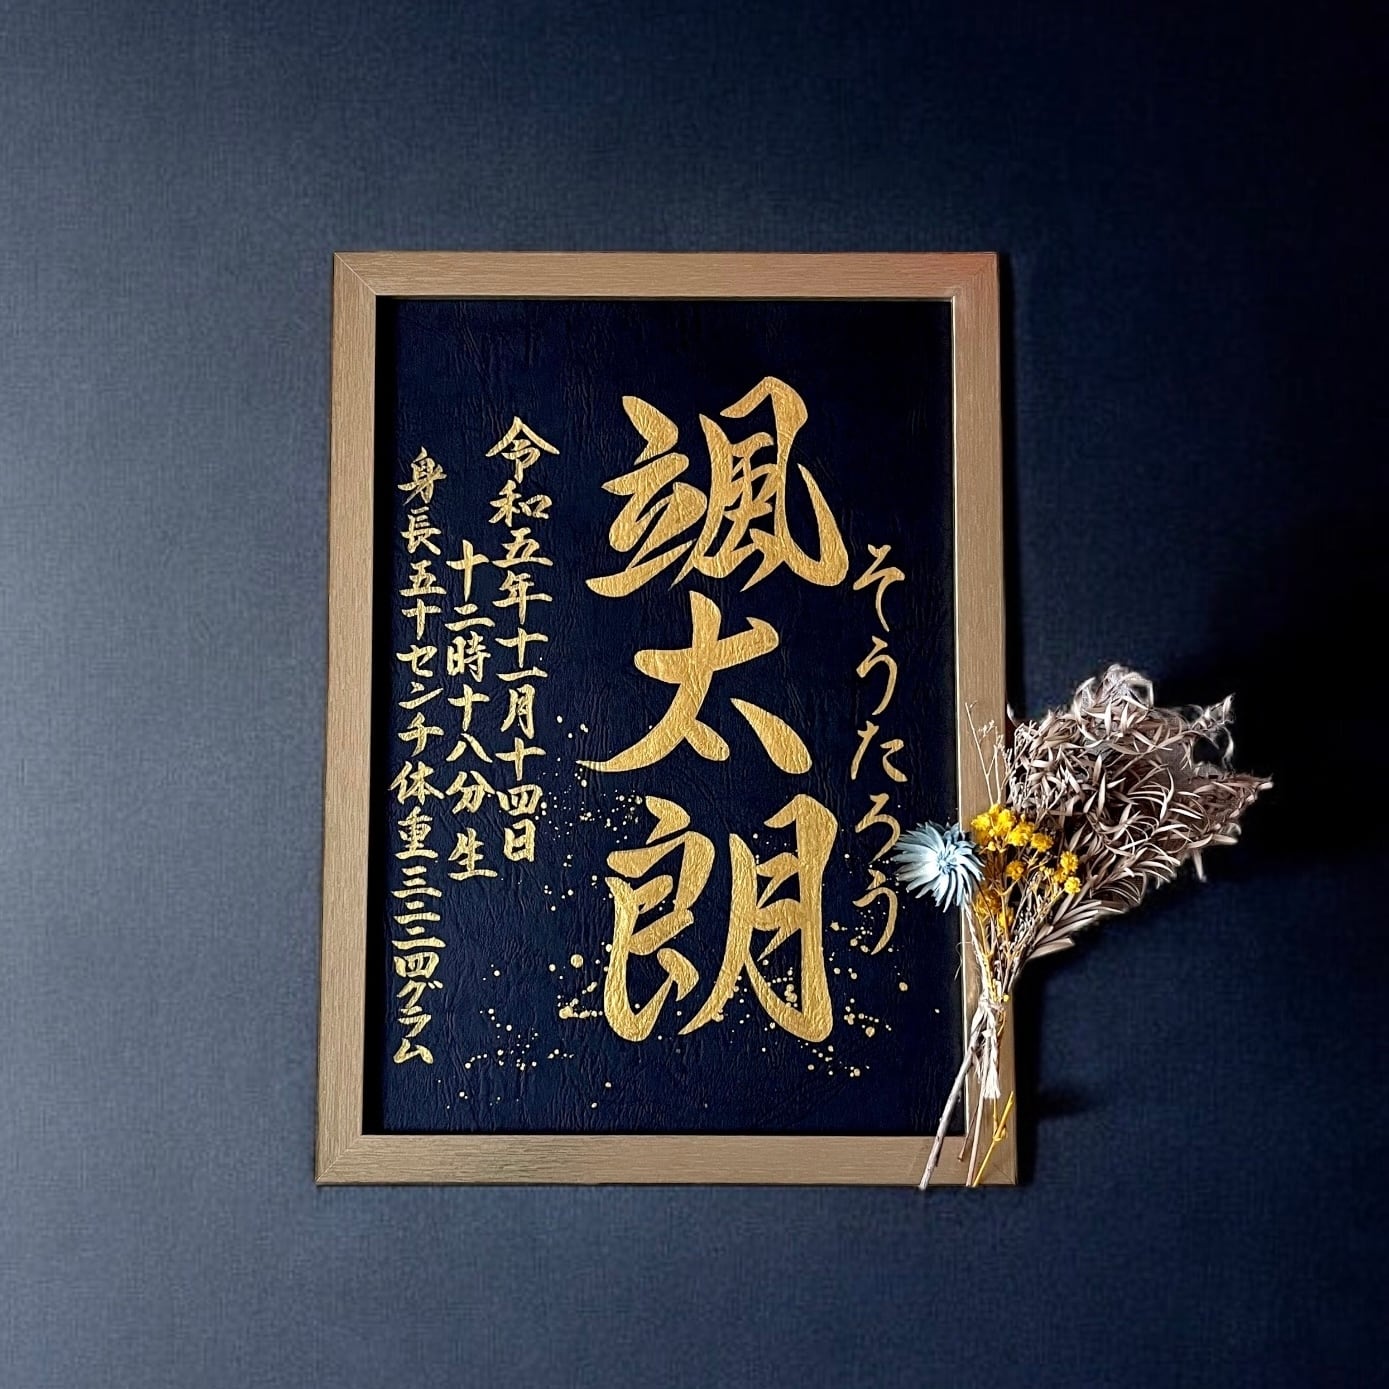 そうたろう
颯太朗
令和五年十一月十四日
十二時十八分生
身長五十センチ体重三二二四グラム